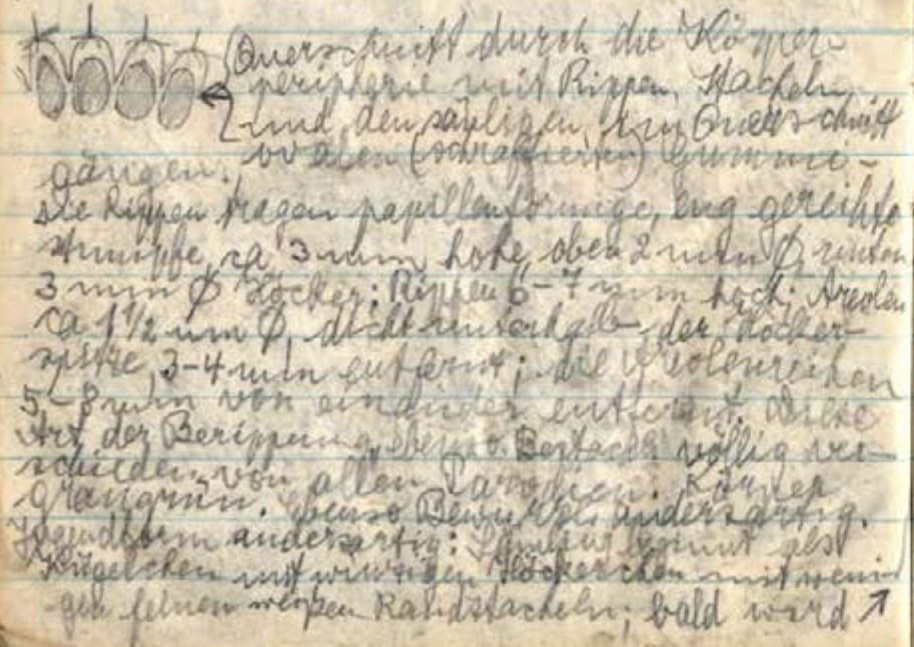 Querschnitt durch die Körper-
peripherie mit Rippen, Stacheln
und den säuligen, im Querschnitt
ovalen (schraffierten) Gummi-
gängen.
Die Rippen tragen papillenförmige, eng gereihte
stumpfe, ca 3 mm hohe, oben 2 mm Ø, unten
3 mm Ø Höcker; Rippen 6-7 mm hoch; Areolen
ca 1 1/2 mm Ø, dicht unterhalb der Höcker-
spitze, 3-4 mm entfernt; die Areolenreihen
5-8 mm von einander entfernt. Diese
Art der Berippung, ebenso Bestachel völlig ver-
schieden von allen Parodien. Körper
graugrün. Ebenso Bewurzel. andersartig.
Jugendform andersartig: Sämling kommt als
Kügelchen mit winzigen Höckerchen mit weni-
gen feinen weißen Randstacheln; bald wird ↗